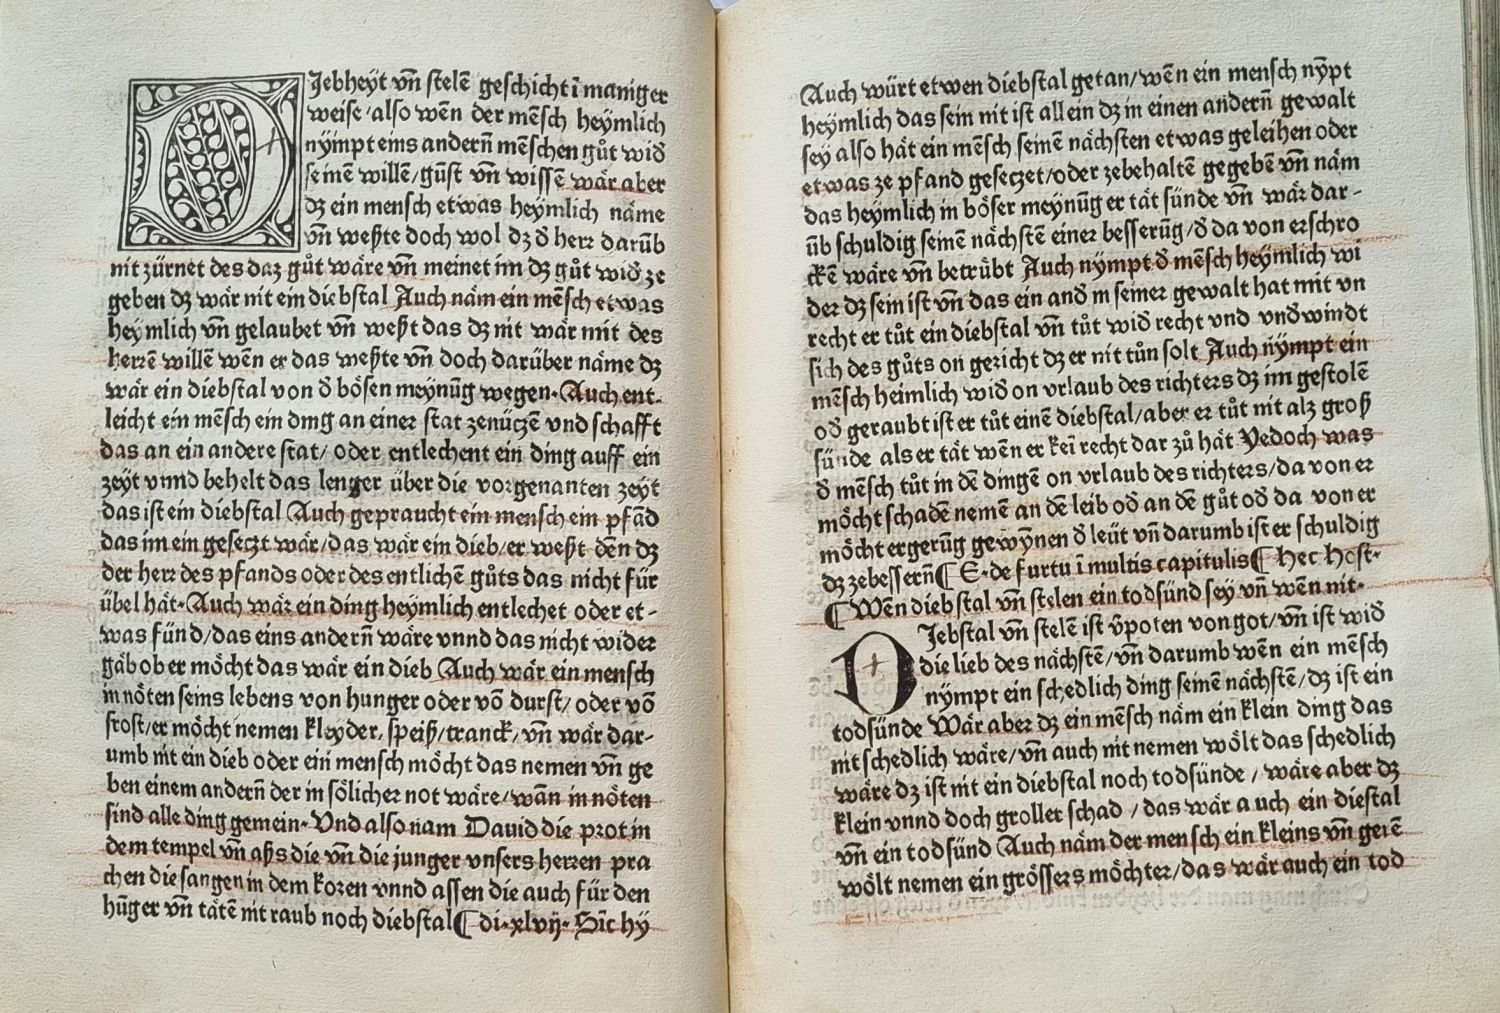 DJebheÿt vn̄ stelē geschicht ī maniger
weise/also wēn der mēsch heÿmlich
nÿmpt eins andern̄ mēschen gůt wid̓
seinēm willē/gūst vn̄ wissē wär aber
dz ein mensch etwas heÿmlich näme
vn̄ weßte doch wol dz d̓ herr darūb
nit zürnet des daz gůt wäre vn̄ meinet im dz gůt wid̓ ze
geben dz wär nit ein diebstal Auch näm ein mēsch etwas
heÿmlich vn̄ gelaubet vn̄ weßt das dz nit wär mit des
herrē willē wēn er das weßte vn̄ doch darüber näme dz
wär ein diebstal von d̓ bösen meynūg wegen· Auch ent-
leicht ein mēsch ein ding an einer stat zenüczē vnd schafft
das an ein andere stat/ oder entlechent ein ding auff ein
zeÿt vnnd behelt das lenger über die vorgenanten zeÿt
das ist ein diebstal Auch gepraucht ein mensch ein pfād
das im ein geseczt wär/das wär ein dieb/er weßt dēn dz
der herr des pfands oder des entlichē gůts das nicht für
übel hät· Auch wär ein ding heÿmlich entlechet oder et-
was fünd/das eins andern̄ wäre vnnd das nicht wider
gäb ober möcht das wär ein dieb Auch wär ein mensch
in nöten seins lebens von hunger oder vō durst/ oder vō
frost/er möcht nemen kleyder, speiß/tranck/ vn̄ wär dar-
umb nit ein dieb oder ein mensch möcht das nemen vn̄ ge
ben einem andern̄ der in sölicher not wäre/wān in nöten
sind alle ding gemein· Vnd also nam Dauid die prot in
dem tempel vn̄ aßs die vn̄ die junger vnsers herren pra
chen die sangen in dem koren vnnd assen die auch für den
hūger vn̄ tätē nit raub noch diebstal ¶ di·xlvij· Sic hÿ
Auch würt etwen diebstal getan/wēn ein mensch nÿpt
heÿmlich das sein nit ist allein dz in einen andern̄ gewalt
seÿ also hät ein mēsch seinē nächsten etwas geleihen oder
etwas ze pfand geseczet/oder zebehaltē gegebē vn̄ näm
das heÿmlich in böser meynūg er tät sünde vn̄ wär dar-
ūb schuldig seinē nächstē einer besserūg/d̓ da von erschro
ckē wäre vn̄ betrübt Auch nÿmpt d̓ mēsch heÿmlich wi
der dz sein ist vn̄ das ein and̓ in seiner gewalt hat mit vn
recht er tůt ein diebstal vn̄ tůt wid̓ recht vnd vnd̓windt
sich des gůts on gericht dz er nit tůn solt Auch nÿmpt ein
mēsch heimlich wid̓ on vrlaub des richters dz im gestolē
od̓ geraubt ist er tůt einē diebstal/aber er tůt nit alz groß
sünde als er tät wēn er kei̅ recht dar zů hät Yedoch was
d̓ mēsch tůt in dē dingē on vrlaub des richters/da von er
möcht schadē nemē an dē leib od̓ an dē gůt od̓ da von er
möcht ergerūg gewÿnen d̓ leüt vn̄ darumb ist er schuldig
dz zebessern̄ ¶ E·de furtu ī multis capitulis ¶ Hec host·
¶ Wēn diebstal vn̄ stelen ein todsünd seÿ vn̄ wēn nit·
DJebstal vn̄ stelē ist v̄poten von got/vn̄ ist wid̓
die lieb des nächstē/vn̄ darumb wēn ein mēsch
nÿmpt ein schedlich ding seinē nächstē/dz ist ein
todsünde Wär aber dz ein mēsch näm ein klein ding das
nit schedlich wäre/vn̄ auch nit nemen wölt das schedlich
wäre dz ist nit ein diebstal noch todsünde/wäre aber dz
klein vnnd doch groller schad/das wär auch ein diestal
vn̄ ein todsünd Auch näm der mensch ein kleins vn̄ gerē
wölt nemen ein grössers möchter/das wär auch ein tod